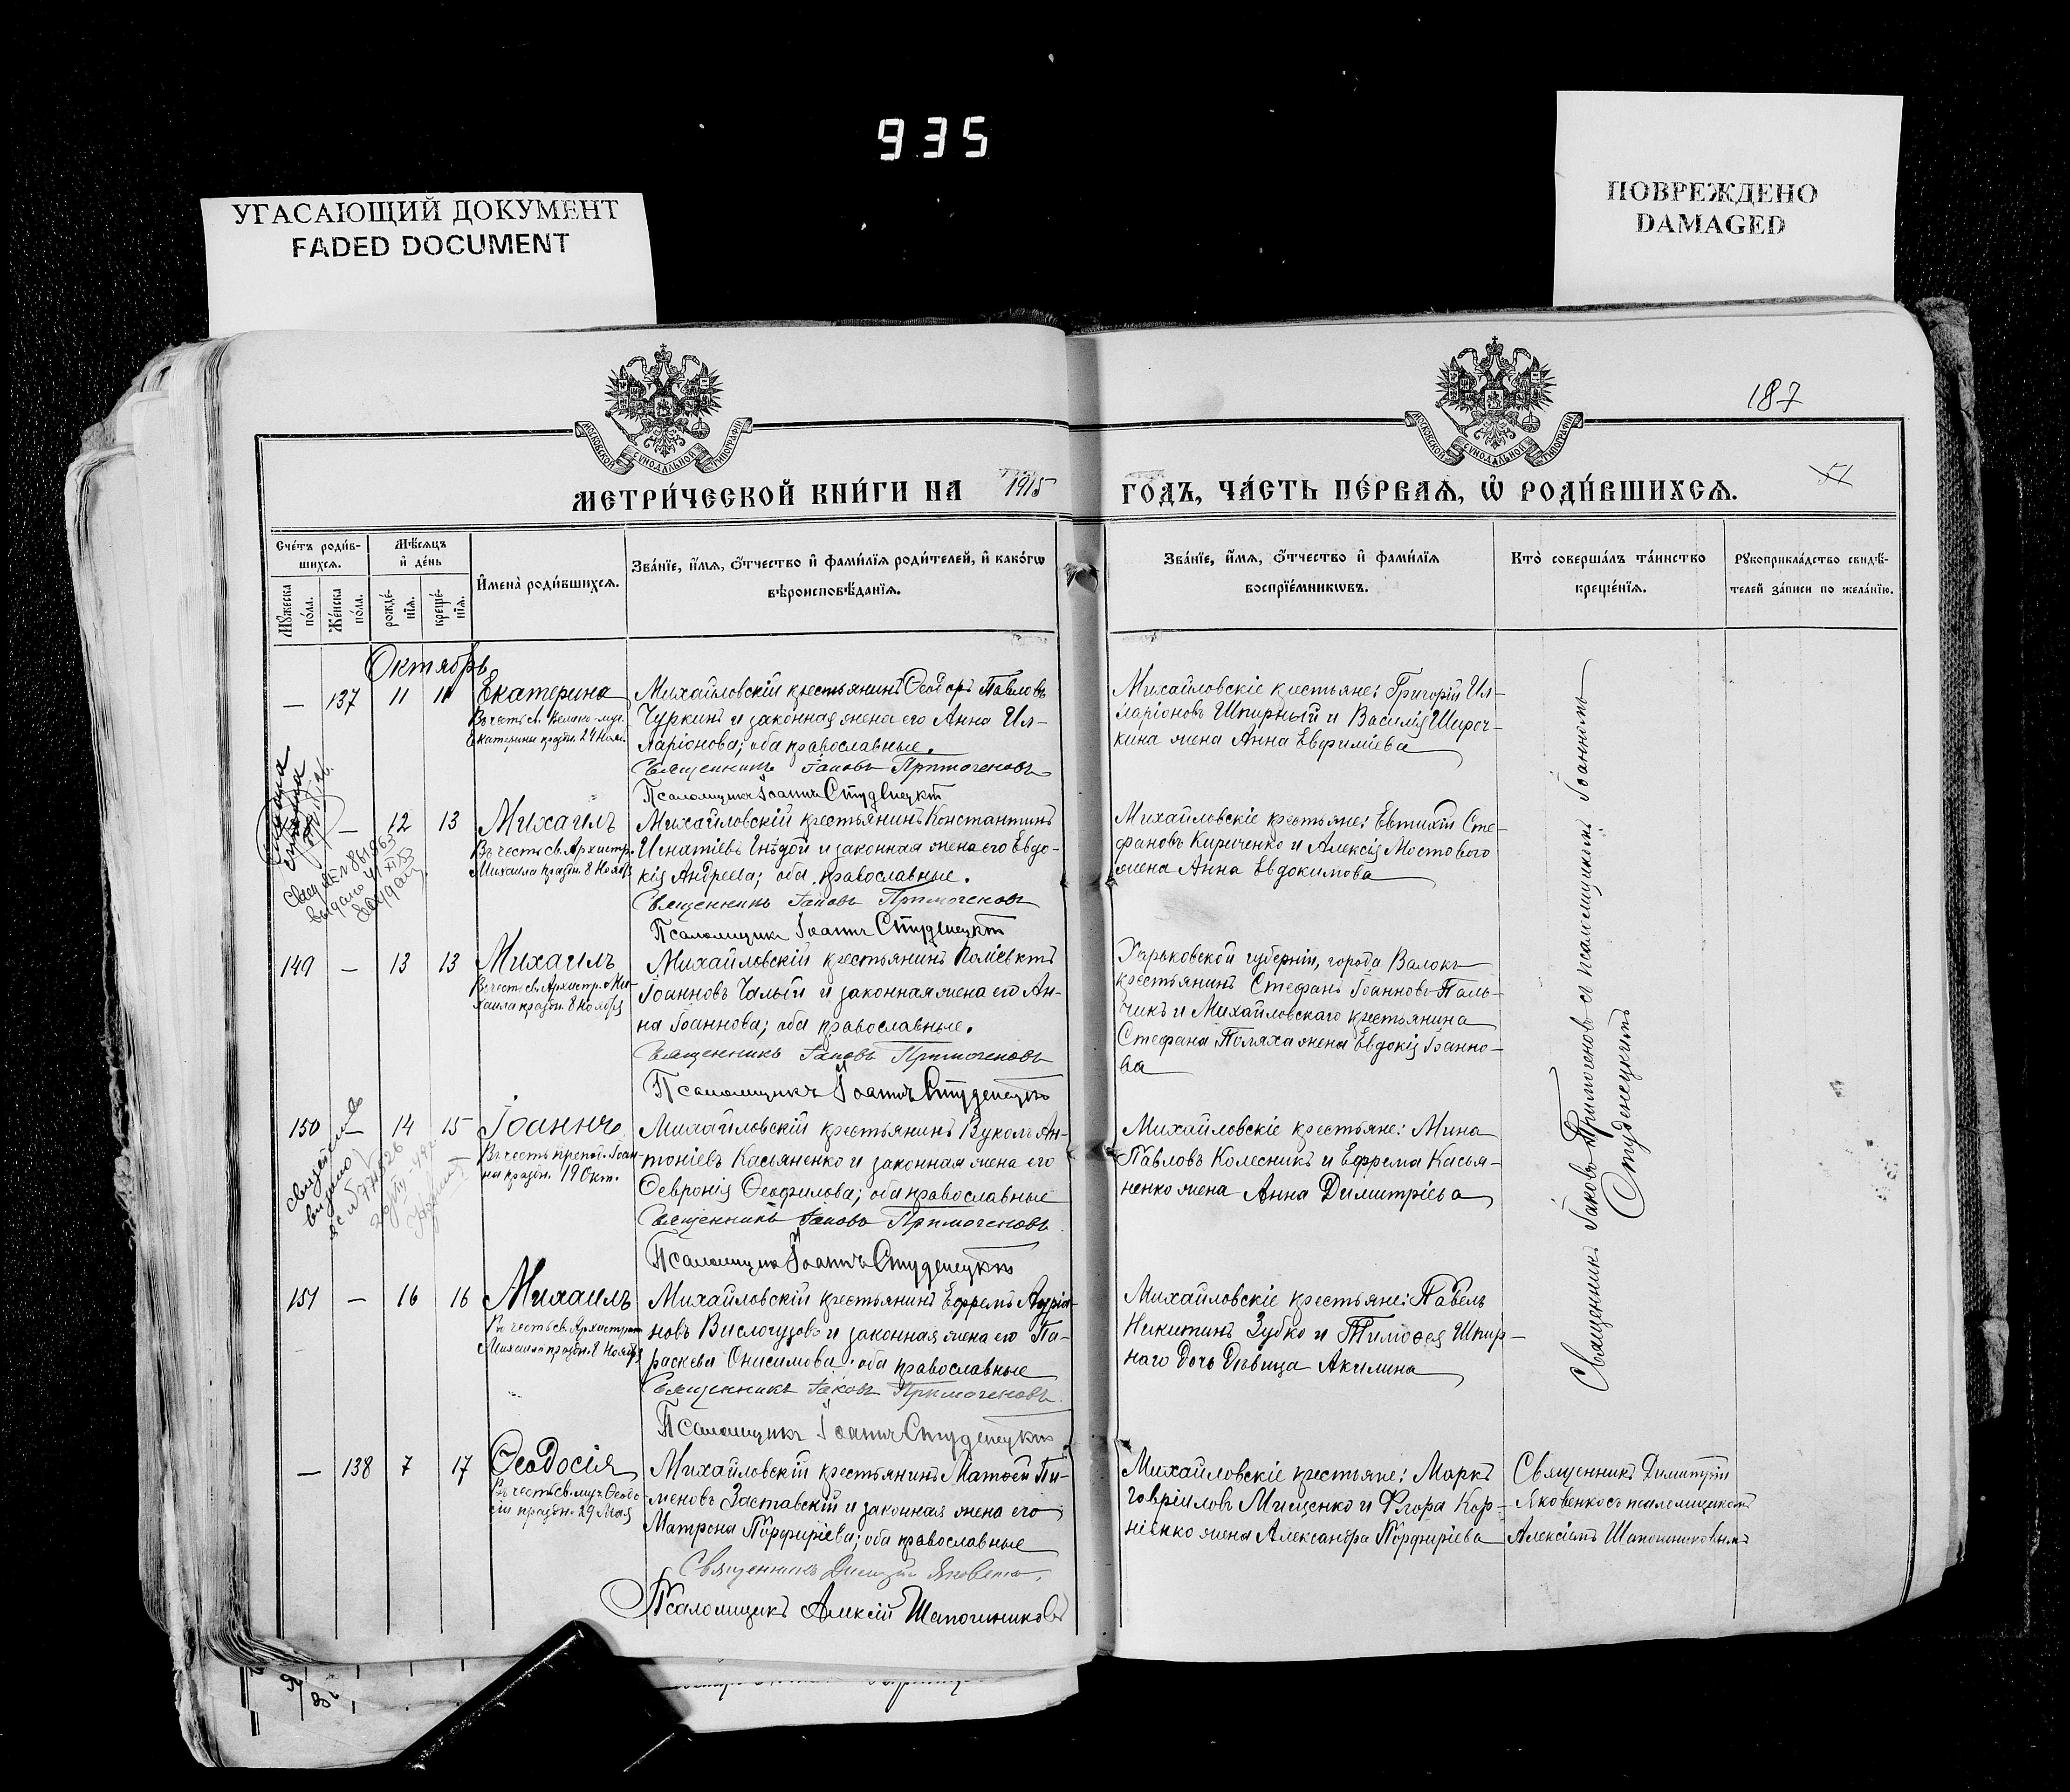 935
УГАСАЮЩИЙ ДОКУМЕНТ
FADED DOCUMENT
ПОВРЕЖДЕНО
DAMAGED
187
МОСКОВСКОЙ СУНОДАЛЬНОЙ ТИПОГРАФІИ
МОСКОВСКОЙ СУНОДАЛЬНОЙ ТИПОГРАФІИ
МЕТРИ́ЧЕСКОЙ КНИ́ГИ НА 1915 ГО́ДЪ, ЧА́СТЬ ПЕ́РВАѦ, Ѡ҆ РОДИ́ВШИХСѦ.
51
Сче́тъ роди́в-
шихсѧ.
Мꙋжеска по́ла.
Же́нска по́ла.
Мѣ́сѧцъ
и҆ де́нь
рожде́-
нїѧ.
креще́-
нїѧ.
И҆мена̀ роди́вшихсѧ.
Зва́нїе, и҆́мѧ, ѻ҆́тчество и҆ фами́лїѧ роди́телей, и҆ како́гѡ
вѣроисповѣ́данїѧ.
Зва́нїе, и҆́мѧ, ѻ҆́тчество и҆ фами́лїѧ
воспрїе́мникѡвъ.
Кто̀ соверша́лъ та́инство
креще́нїѧ.
Рꙋкоприкла́дство свидѣ́-
телей за́писи по жела́нїю.
Октябрь
— 137 11 11 Екатерина
Въ честь св. Велико-муч.
Екатерины праздн. 24 Нояб.
Михайловскій крестьянинъ Ѳеодоръ Павловъ
Чуркинъ и законная жена его Анна Ил-
ларіонова; оба православные.
Священникъ Іаковъ Примогеновъ
Псаломщикъ Іоаннъ Студенецкій
Михайловскіе крестьяне: Григорій Ил-
ларіоновъ Шпирный и Василія Широч-
кина жена Анна Евфиміева
— 12 13 Михаилъ
Въ честь св. Архистр.
Михаила праздн. 8 Ноября
Михайловскій крестьянинъ Константинъ
Игнатіевъ Гнѣдой и законная жена его Евдо-
кія Андреева; оба православные.
Священникъ Іаковъ Примогеновъ
Псаломщикъ Іоаннъ Студенецкій
Михайловскіе крестьяне: Евтихій Сте-
фановъ Кириченко и Алексія Мостового
жена Анна Евдокимова
149 — 13 13 Михаилъ
Въ честь св. Архистр. Ми-
хаила праздн. 8 Ноября
Михайловскій крестьянинъ Поліевктъ
Іоанновъ Чалый и законная жена его Ан-
на Іоаннова; оба православные.
Священникъ Іаковъ Примогеновъ
Псаломщикъ Іоаннъ Студенецкій
Харьковской губерніи, города Валокъ
крестьянинъ Стефанъ Іоанновъ Паль-
чикъ и Михайловскаго крестьянина
Стефана Поляха жена Евдокія Іоанно-
ва
150 — 14 15 Іоаннъ
Въ честь препод. Іоан-
на праздн. 19 Окт.
Михайловскій крестьянинъ Вуколъ Ан-
тоніевъ Касьяненко и законная жена его
Ѳевронія Ѳеофилова; оба православные
Священникъ Іаковъ Примогеновъ
Псаломщикъ Іоаннъ Студенецкій
Михайловскіе крестьяне: Мина
Павловъ Колесникъ и Ефрема Касья-
ненко жена Анна Димитріева
151 — 16 16 Михаилъ
Въ честь св. Архистрат.
Михаила праздн. 8 Ноября
Михайловскій крестьянинъ Ефремъ Адріа-
новъ Вислогузовъ и законная жена его Па-
раскева Онисимова; оба православные
Священникъ Іаковъ Примогеновъ
Псаломщикъ Іоаннъ Студенецкій
Михайловскіе крестьяне: Павелъ
Никитинъ Зубко и Тимоѳея Шпир-
наго дочь дѣвица Акилина
Священникъ Іаковъ Примогеновъ съ псаломщикомъ Іоанномъ
Студенецкимъ
— 138 7 17 Ѳеодосія
Въ честь св. муч. Ѳеодо-
сіи праздн. 29 Мая
Михайловскій крестьянинъ Матѳей Пи-
меновъ Заставскій и законная жена его
Матрона Порфиріева; оба православные
Священникъ Димитрій Яковенко
Псаломщикъ Алексій Шапошниковъ
Михайловскіе крестьяне: Маркъ
Гавріиловъ Мищенко и Флора Кор-
ніенко жена Александра Порфиріева
Священникъ Димитрій
Яковенко съ псаломщикомъ
Алексіемъ Шапошниковымъ